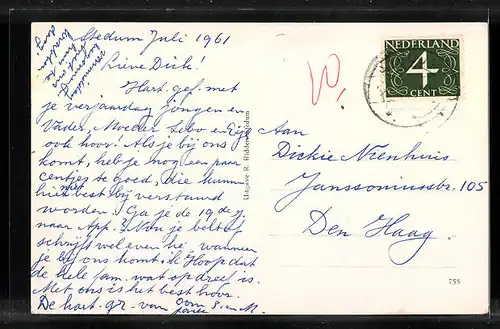 Stedum Juli 1961
Lieve Dick!
Hart. gef. met
je verjaardag jongen en
Vader, Moeder Lebo en Eije
ook hoor! Als je bij ons
komt, heb je nog een paar
centjes te goed, die kunnen
niet best bij verstuurd
worden. Ga je de 19de
naar App.? Nou je belt of
schrijft wel even hè, wanneer
je bij ons komt, ik Hoop dat
de hele fam. wat opdreef is.
Met ons is het best hoor.
De hart. gr. van oom
tante S. en M.
Uitgave R. Ridder, Stedum
NEDERLAND
4
CENT
10,
Aan
Dickie Nienhuis
Janssoniusstr. 105
Den Haag.
755